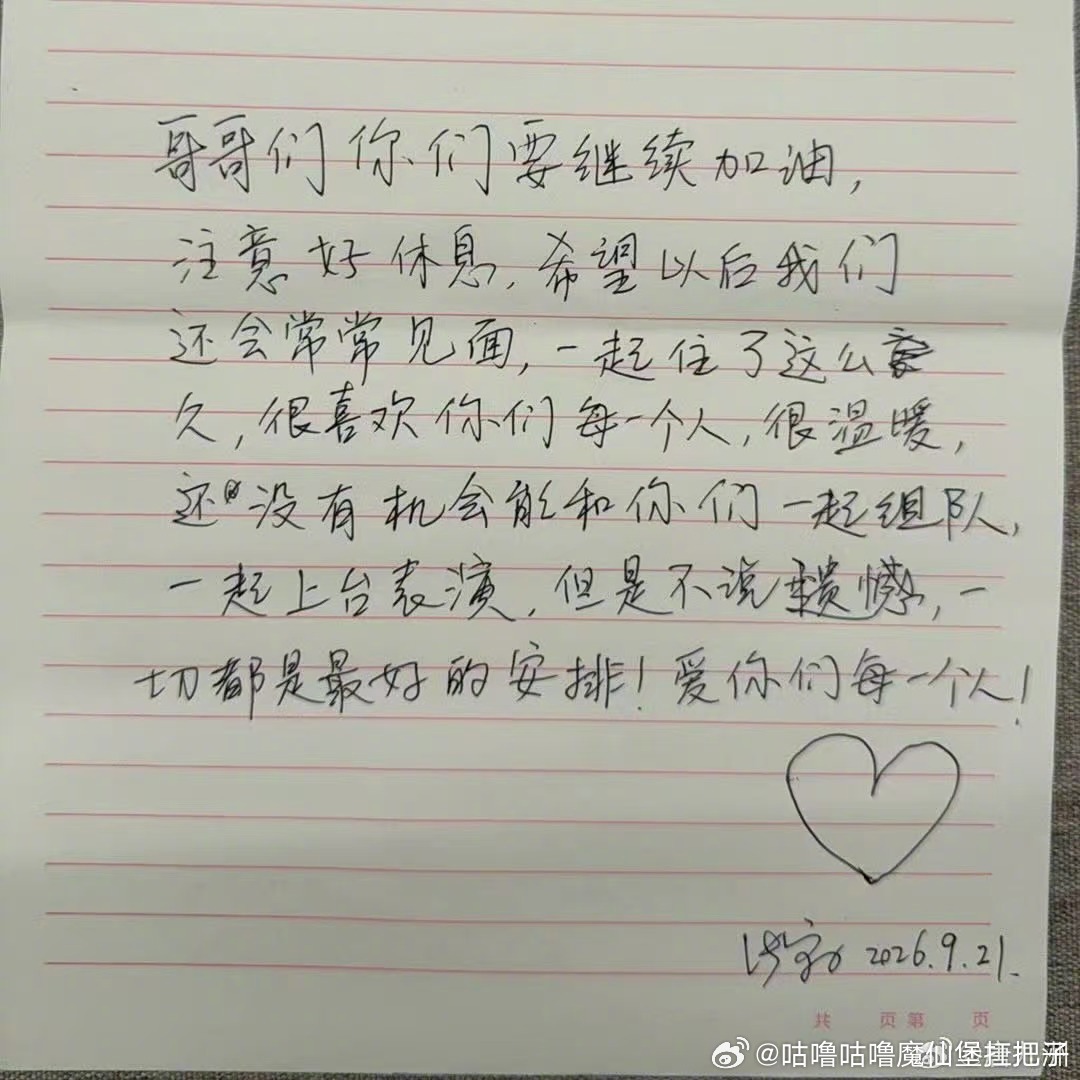 哥哥们你们要继续加油，
注意好休息，希望以后我们
还会常常见面，一起住了这么
久，很喜欢你们每一个人，很温暖，
还没有机会能和你们一起组队，
一起上台表演，但是不说遗憾，一
切都是最好的安排！爱你们每一个人！
2026.9.21.
共 页 第 页
@咕噜咕噜魔